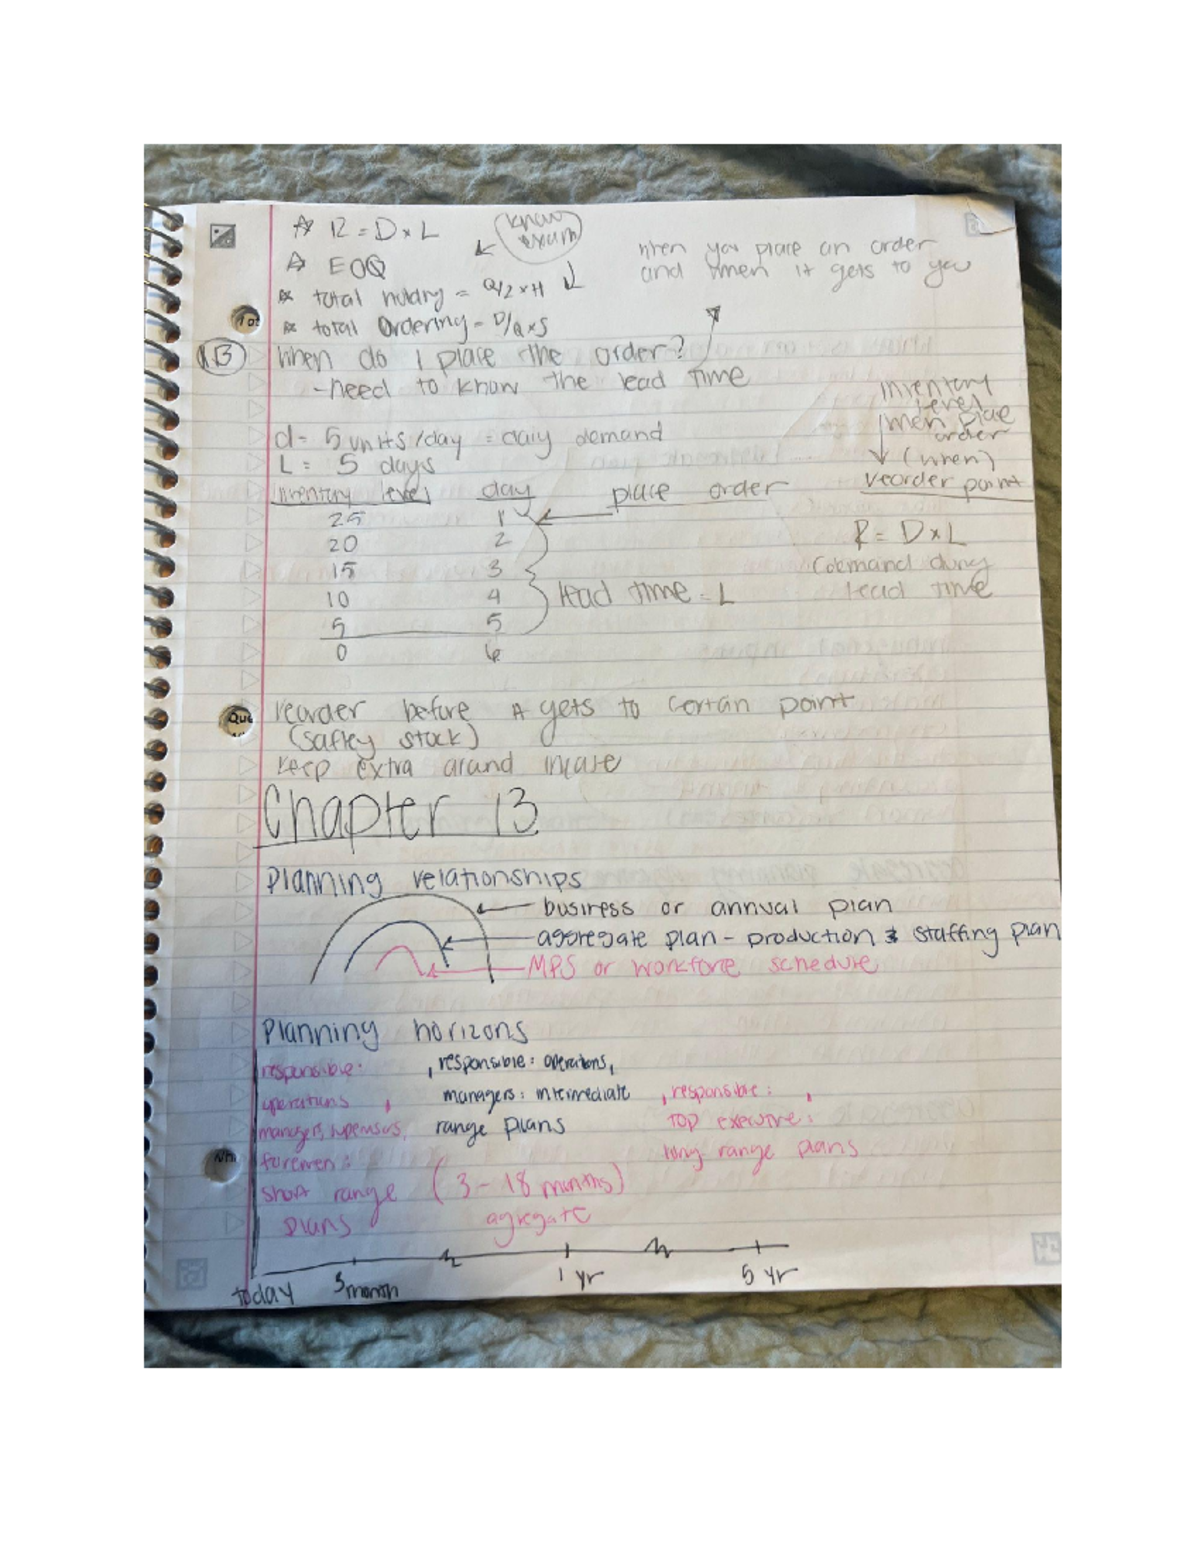 R = D x L
know exam
EOQ
total holdng = Q/2 x H
total Ordering = D/Q x S
when you place an order
and when it gets to you
B
When do I place the order?
- need to know the lead time
d = 5 units/day = daily demand
L = 5 days
Inventory level
when place
order
(when)
reorder point
inventory level day place order
25 1
20 2
15 3
10 4
5 5
0 6
lead time = L
R = D x L
(demand durng
lead time
reorder before it gets to certain point
(saftey stock)
keep extra around incase
Chapter 13
Planning relationships
business or annual plan
aggregate plan - production & staffing plan
MPS or workforce schedule
Planning horizons
responsible:
operations,
managers, supervisors,
foremen:
short range
plans
responsible: operations,
managers: intermediate
range plans
(3-18 months)
agregate
responsible:
TOP executive:
long range plans
today 3 month 1 yr 5 yr
Que